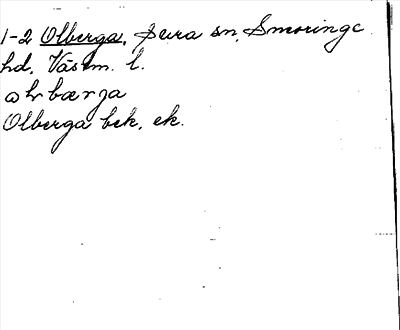 1-2 Olberga, Svea sn, Simoringe
hd, Västm. l.
ωlrbærga
Olberga bek, ek.